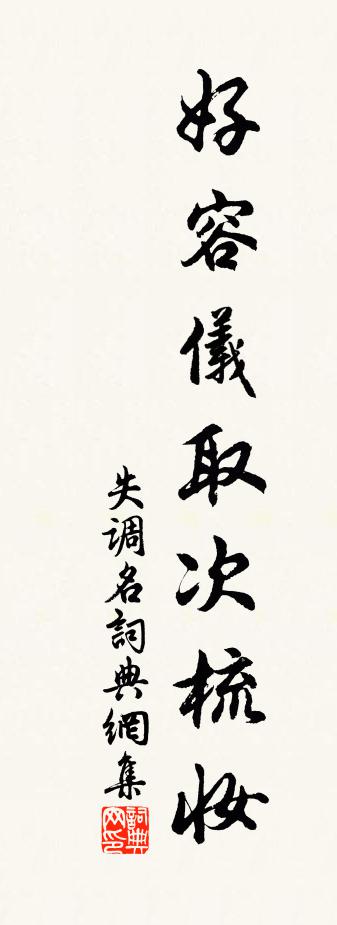 好容儀取次梳妝
失調名詞典網集
詞典
网印